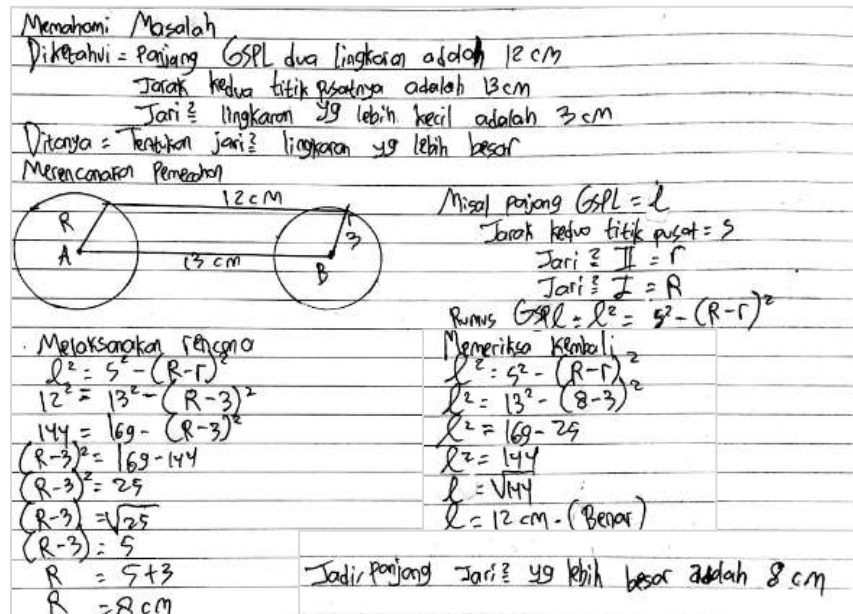 Memahami Masalah
Diketahui = Panjang GSPL dua lingkaran adalah 12 cm
Jarak kedua titik pusatnya adalah 13 cm
Jari² lingkaran yg lebih kecil adalah 3 cm
Ditanya = Tentukan jari² lingkaran yg lebih besar
Merencanakan Pemecahan
12 cm
R
A
13 cm
r
3
B
Misal panjang GSPL = l
Jarak kedua titik pusat = s
Jari² II = r
Jari² I = R
Rumus GSPL = l² = s² - (R-r)²
Melaksanakan rencana
l² = s² - (R-r)²
12² = 13² - (R-3)²
144 = 169 - (R-3)²
(R-3)² = 169-144
(R-3)² = 25
(R-3) = √25
(R-3) = 5
R = 5+3
R = 8 cm
Memeriksa Kembali
l² = s² - (R-r)²
l² = 13² - (8-3)²
l² = 169 - 25
l² = 144
l = √144
l = 12 cm. (Benar)
Jadi, panjang Jari² yg lebih besar adalah 8 cm